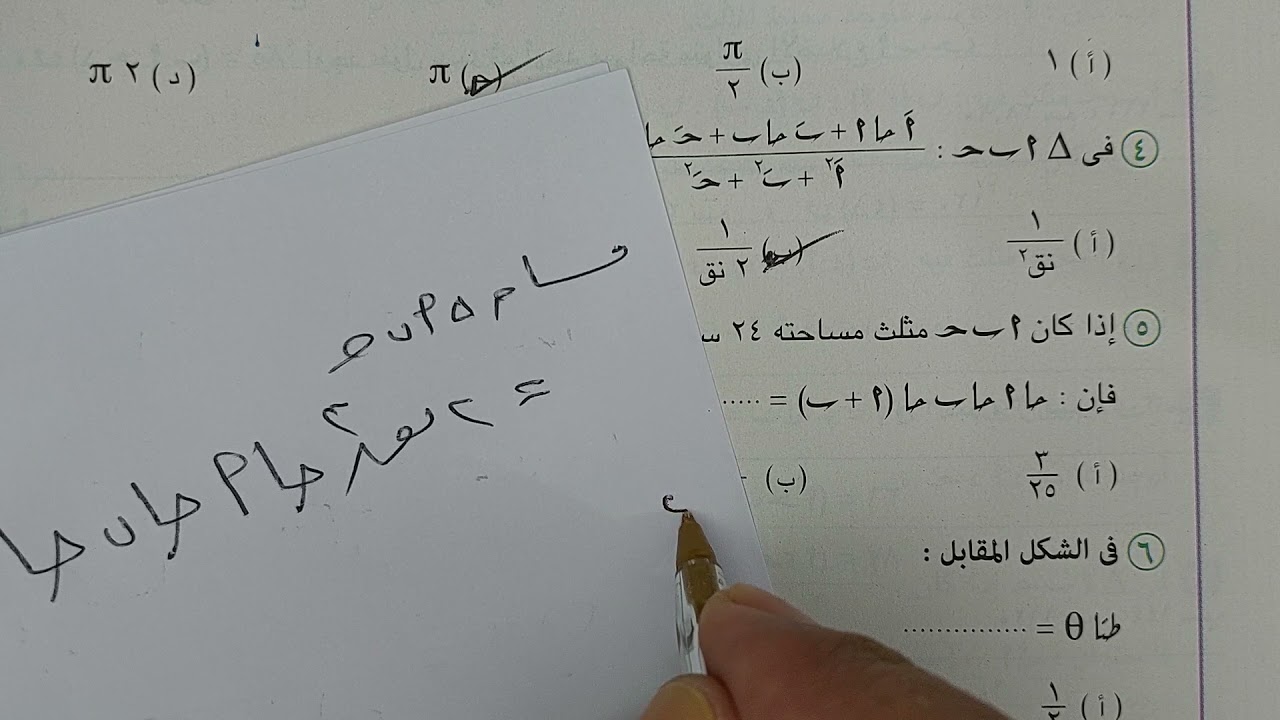 (أ) ١ (ب) π/٢ (ج) π (د) ٢ π
٤ فى Δ ا ب ح : (اَ حا ا + بَ حا ب + حَ حا) / (اَ٢ + بَ٢ + حَ٢)
(أ) ١/نق٢ (ب) ١/٢ نق
٥ إذا كان ا ب ح مثلث مساحته ٢٤
فإن : حا ا حا ب حا (ا + ب) = .....
(أ) ٣/٢٥ (ب)
٦ فى الشكل المقابل :
طتا θ = ...............
(أ) ١/٢
م Δ ا ب ح
= ٢ نق٢ حا ا حا ب حا